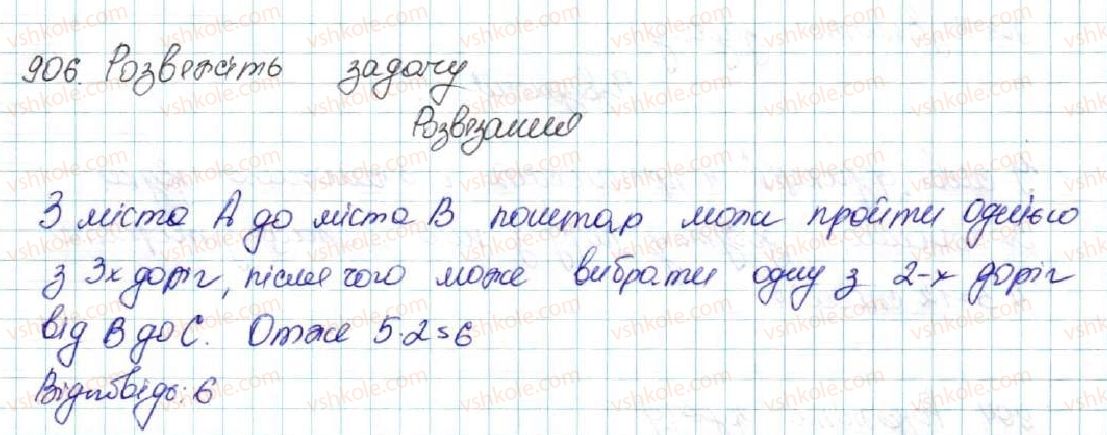 906 Розвежіть задачу
Розвезання
З міста А до міста В поштар може пройти однією
з 3х доріг, після чого може вибрати одну з 2-х доріг
від В до С. Отже 5·2=6
Відповідь: 6